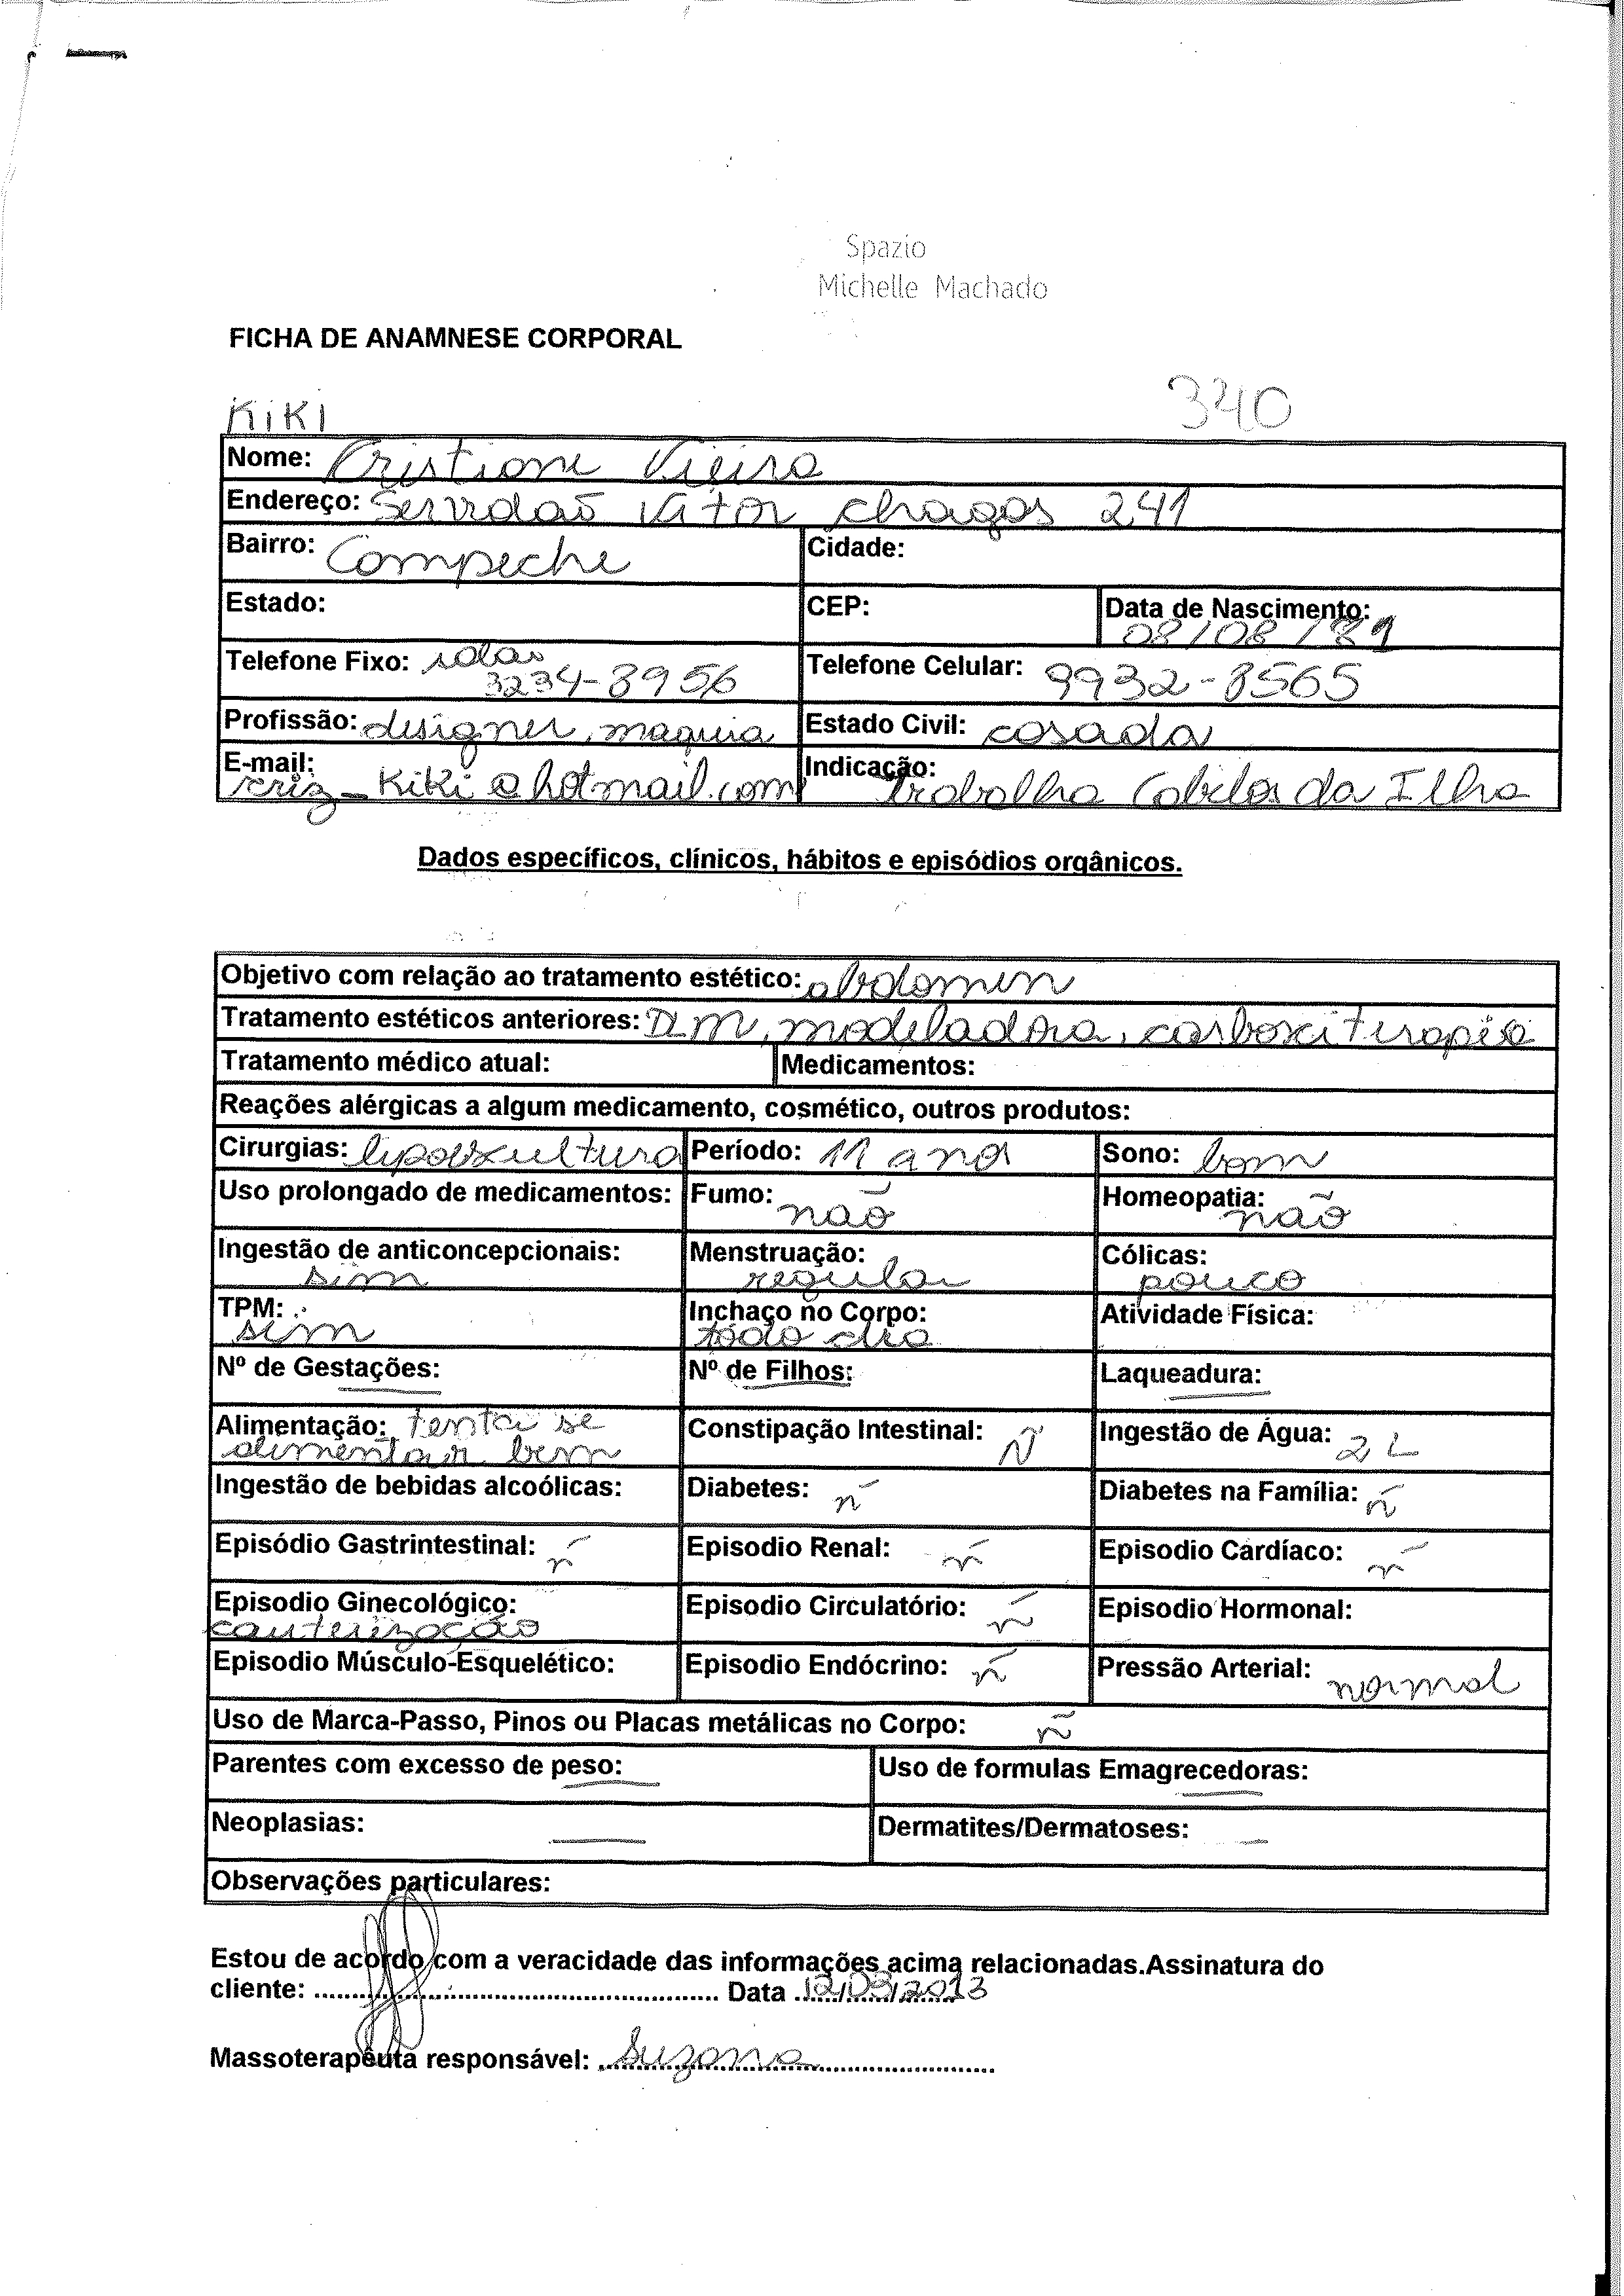 Spazio
Michelle Machado
FICHA DE ANAMNESE CORPORAL
KiKi
340
Nome: Cristiane Vieira
Endereço: Servidão Vitor chagas 241
Bairro: Campeche Cidade:
Estado: CEP: Data de Nascimento:
08/08/81
Telefone Fixo: Telefone Celular: 9932-8565
3234-8956
Profissão: designer, maquia Estado Civil: casada
E-mail: Indicação:
criz_kiki@hotmail.com trabalha Cabelos da Ilha
Dados específicos, clínicos, hábitos e episódios orgânicos.
Objetivo com relação ao tratamento estético: abdomen
Tratamento estéticos anteriores: DLM, modeladora, carboxiterapia
Tratamento médico atual: Medicamentos:
Reações alérgicas a algum medicamento, cosmético, outros produtos:
Cirurgias: lipoescultura Período: 11 anos Sono: bom
Uso prolongado de medicamentos: Fumo: não Homeopatia: não
Ingestão de anticoncepcionais: sim Menstruação: regular Cólicas: pouco
TPM: sim Inchaço no Corpo: todo dia Atividade Física:
Nº de Gestações: Nº de Filhos: Laqueadura:
Alimentação: tenta se Constipação Intestinal: Ñ Ingestão de Água: 2 L
alimentar bem
Ingestão de bebidas alcoólicas: Diabetes: ñ Diabetes na Família: ñ
Episódio Gastrintestinal: ñ Episodio Renal: ñ Episodio Cardíaco: ñ
Episodio Ginecológico: Episodio Circulatório: ñ Episodio Hormonal:
cauterização
Episodio Músculo-Esquelético: Episodio Endócrino: ñ Pressão Arterial: normal
Uso de Marca-Passo, Pinos ou Placas metálicas no Corpo: ñ
Parentes com excesso de peso: Uso de formulas Emagrecedoras:
Neoplasias: Dermatites/Dermatoses:
Observações particulares:
Estou de acordo com a veracidade das informações acima relacionadas.Assinatura do
cliente: ........ Data 12/03/2013
Massoterapêuta responsável: Suzana